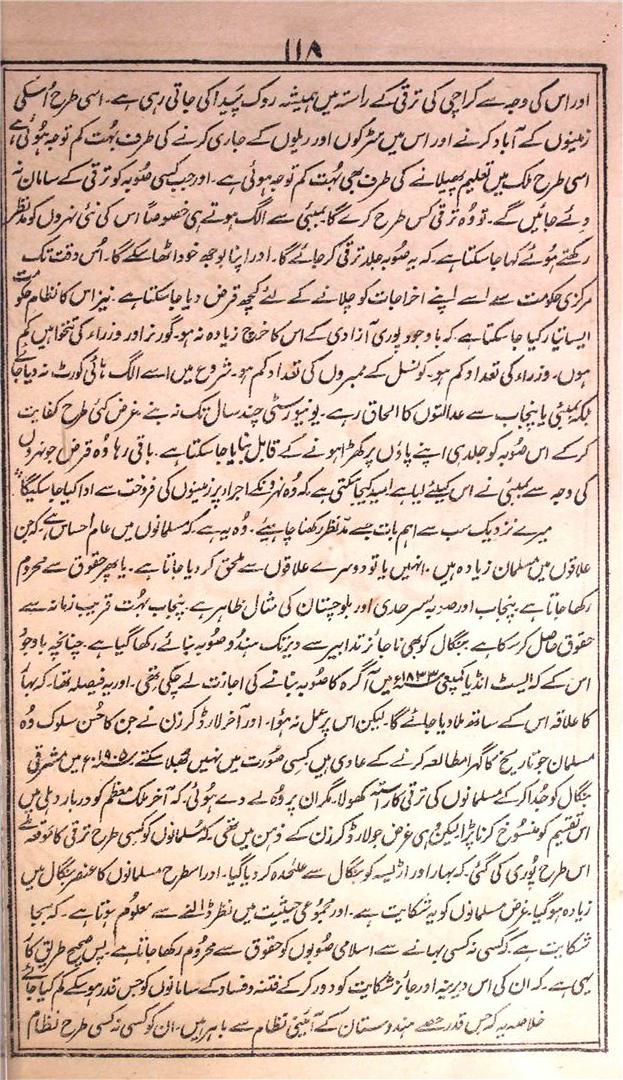 ۱۱۸
اور اس کی وجہ سے کراچی کی ترقی کے راستہ میں ہمیشہ روک پیدا کی جاتی رہی ہے۔ اسی طرح اُسکی
زمینوں کے آباد کرنے اور اس میں سڑکوں اور ریلوں کے جاری کرنے کی طرف بہُت کم توجہ ہوئی ہے
اسی طرح ملک میں تعلیم پھیلانے کی طرف بھی بہُت کم توجہ ہوئی ہے۔ اور جب کسی صُوبہ کو ترقی کے سامان نہ
دئے جائیں گے۔ تو وُہ ترقی کس طرح کرے گا۔ بمبئی سے الگ ہوتے ہی خصوصاً اس کی نئی نہروں کو مدنظر
رکھتے ہوُئے کہا جا سکتا ہے۔ کہ یہ صُوبہ جلد ترقی کر جائے گا۔ اور اپنا بوجھ خود اٹھا سکے گا۔ اُس وقت تک
مرکزی حکومت سے اسے اپنے اخراجات کو چلانے کے لئے کچھ قرض دیا جا سکتا ہے۔ نیز اس کا نظام حکومت
ایسا تیار کیا جا سکتا ہے۔ کہ باوجود پوری آزادی کے اس کا خرچ زیادہ نہ ہو۔ گورنر اور وزراء کی تنخواہیں کم
ہوں۔ وزراء کی تعداد کم ہو۔ کونسل کے ممبروں کی تعداد کم ہو۔ شروع میں اسے الگ ہائی کورٹ نہ دیا جائے
بلکہ بمبئی یا پنجاب سے عدالتوں کا الحاق رہے۔ یونیورسٹی چند سال تک نہ بنے۔ غرض کئی طرح کفایت
کر کے اس صُوبہ کو جلد ہی اپنے پاؤں پر کھڑا ہونے کے قابل بنایا جا سکتا ہے۔ باقی رہا وُہ قرض جو نہروں
کی وجہ سے بمبئی نے اس کیلئے لیا ہے امید کیجا سکتی ہے کہ وُہ نہروں کے اجراء پر زمینوں کی فروخت سے ادا کیا جا سکیگا
میرے نزدیک سب سے اہم بات جسے مدّنظر رکھنا چاہیئے۔ وُہ یہ ہے۔ کہ مسلمانوں میں عام احساس ہے کہ جن
علاقوں میں مسلمان زیادہ ہیں۔ انہیں یا تو دوسرے علاقوں سے ملحق کر دیا جاتا ہے۔ یا پھر حقوق سے محروم
رکھا جاتا ہے۔ پنجاب اور صوبہ سرحدی اور بلوچستان کی مثال ظاہر ہے۔ پنجاب بہُت قریب زمانہ سے
حقوق حاصل کر سکا ہے۔ بنگال کو بھی ناجائز تدابیر سے دیر تک ہندو صُوبہ بنائے رکھا گیا ہے۔ چنانچہ باوجود
اس کے کہ ایسٹ انڈیا کمپنی ۱۸۳۳ء میں آگرہ کا صُوبہ بنانے کی اجازت لے چکی تھی۔ اور یہ فیصلہ تھا۔ کہ بہار
کا علاقہ اس کے ساتھ ملا دیا جائے گا۔ لیکن اس پر عمل نہ ہوُا۔ اور آخر لارڈ کرزن نے جن کا حُسن سلوک وُہ
مسلمان جو تاریخ کا گہرا مطالعہ کرنے کے عادی ہیں کسی صوُرت میں نہیں بھُلا سکتے ۱۹۰۵ء میں مشرقی
بنگال کو جُدا کر کے مسلمانوں کی ترقی کا راستہ کھولا۔ مگر ان پر وُہ لے دے ہوئی۔ کہ آخر ملک معظم کو دربار دہلی میں
اس تقسیم کو منسوُخ کرنا پڑا لیکن وُہی غرض جو لارڈ کرزن کے ذہن میں تھی۔ کہ مُسلمانوں کو کسی طرح ترقی کا موقعہ ملے
اس طرح پوُری کی گئی۔ کہ بہار اور اڑیسہ کو بنگال سے علیٰحدہ کر دیا گیا۔ اور اسطرح مسلمانوں کا عنصر بنگال میں
زیادہ ہو گیا۔ غرض مسلمانوں کو یہ شکایت ہے۔ اور مجموعی حیثیت میں نظر ڈالنے سے معلوُم ہوتا ہے۔ کہ بجا
شکایت ہے۔ کہ کسی نہ کسی بہانے سے اسلامی صُوبوں کو حقوق سے محروُم رکھا جاتا ہے۔ پس صحیح طریق کار
یہی ہے۔ کہ ان کی اس دیرینہ اور جائز شکایت کو دور کر کے فتنہ و فساد کے سامانوں کو جس قدر ہو سکے کم کیا جائے
خلاصہ یہ کہ جس قدر حصے ہندوستان کے آئینی نظام سے باہر ہیں۔ ان کو کسی نہ کسی طرح نظام